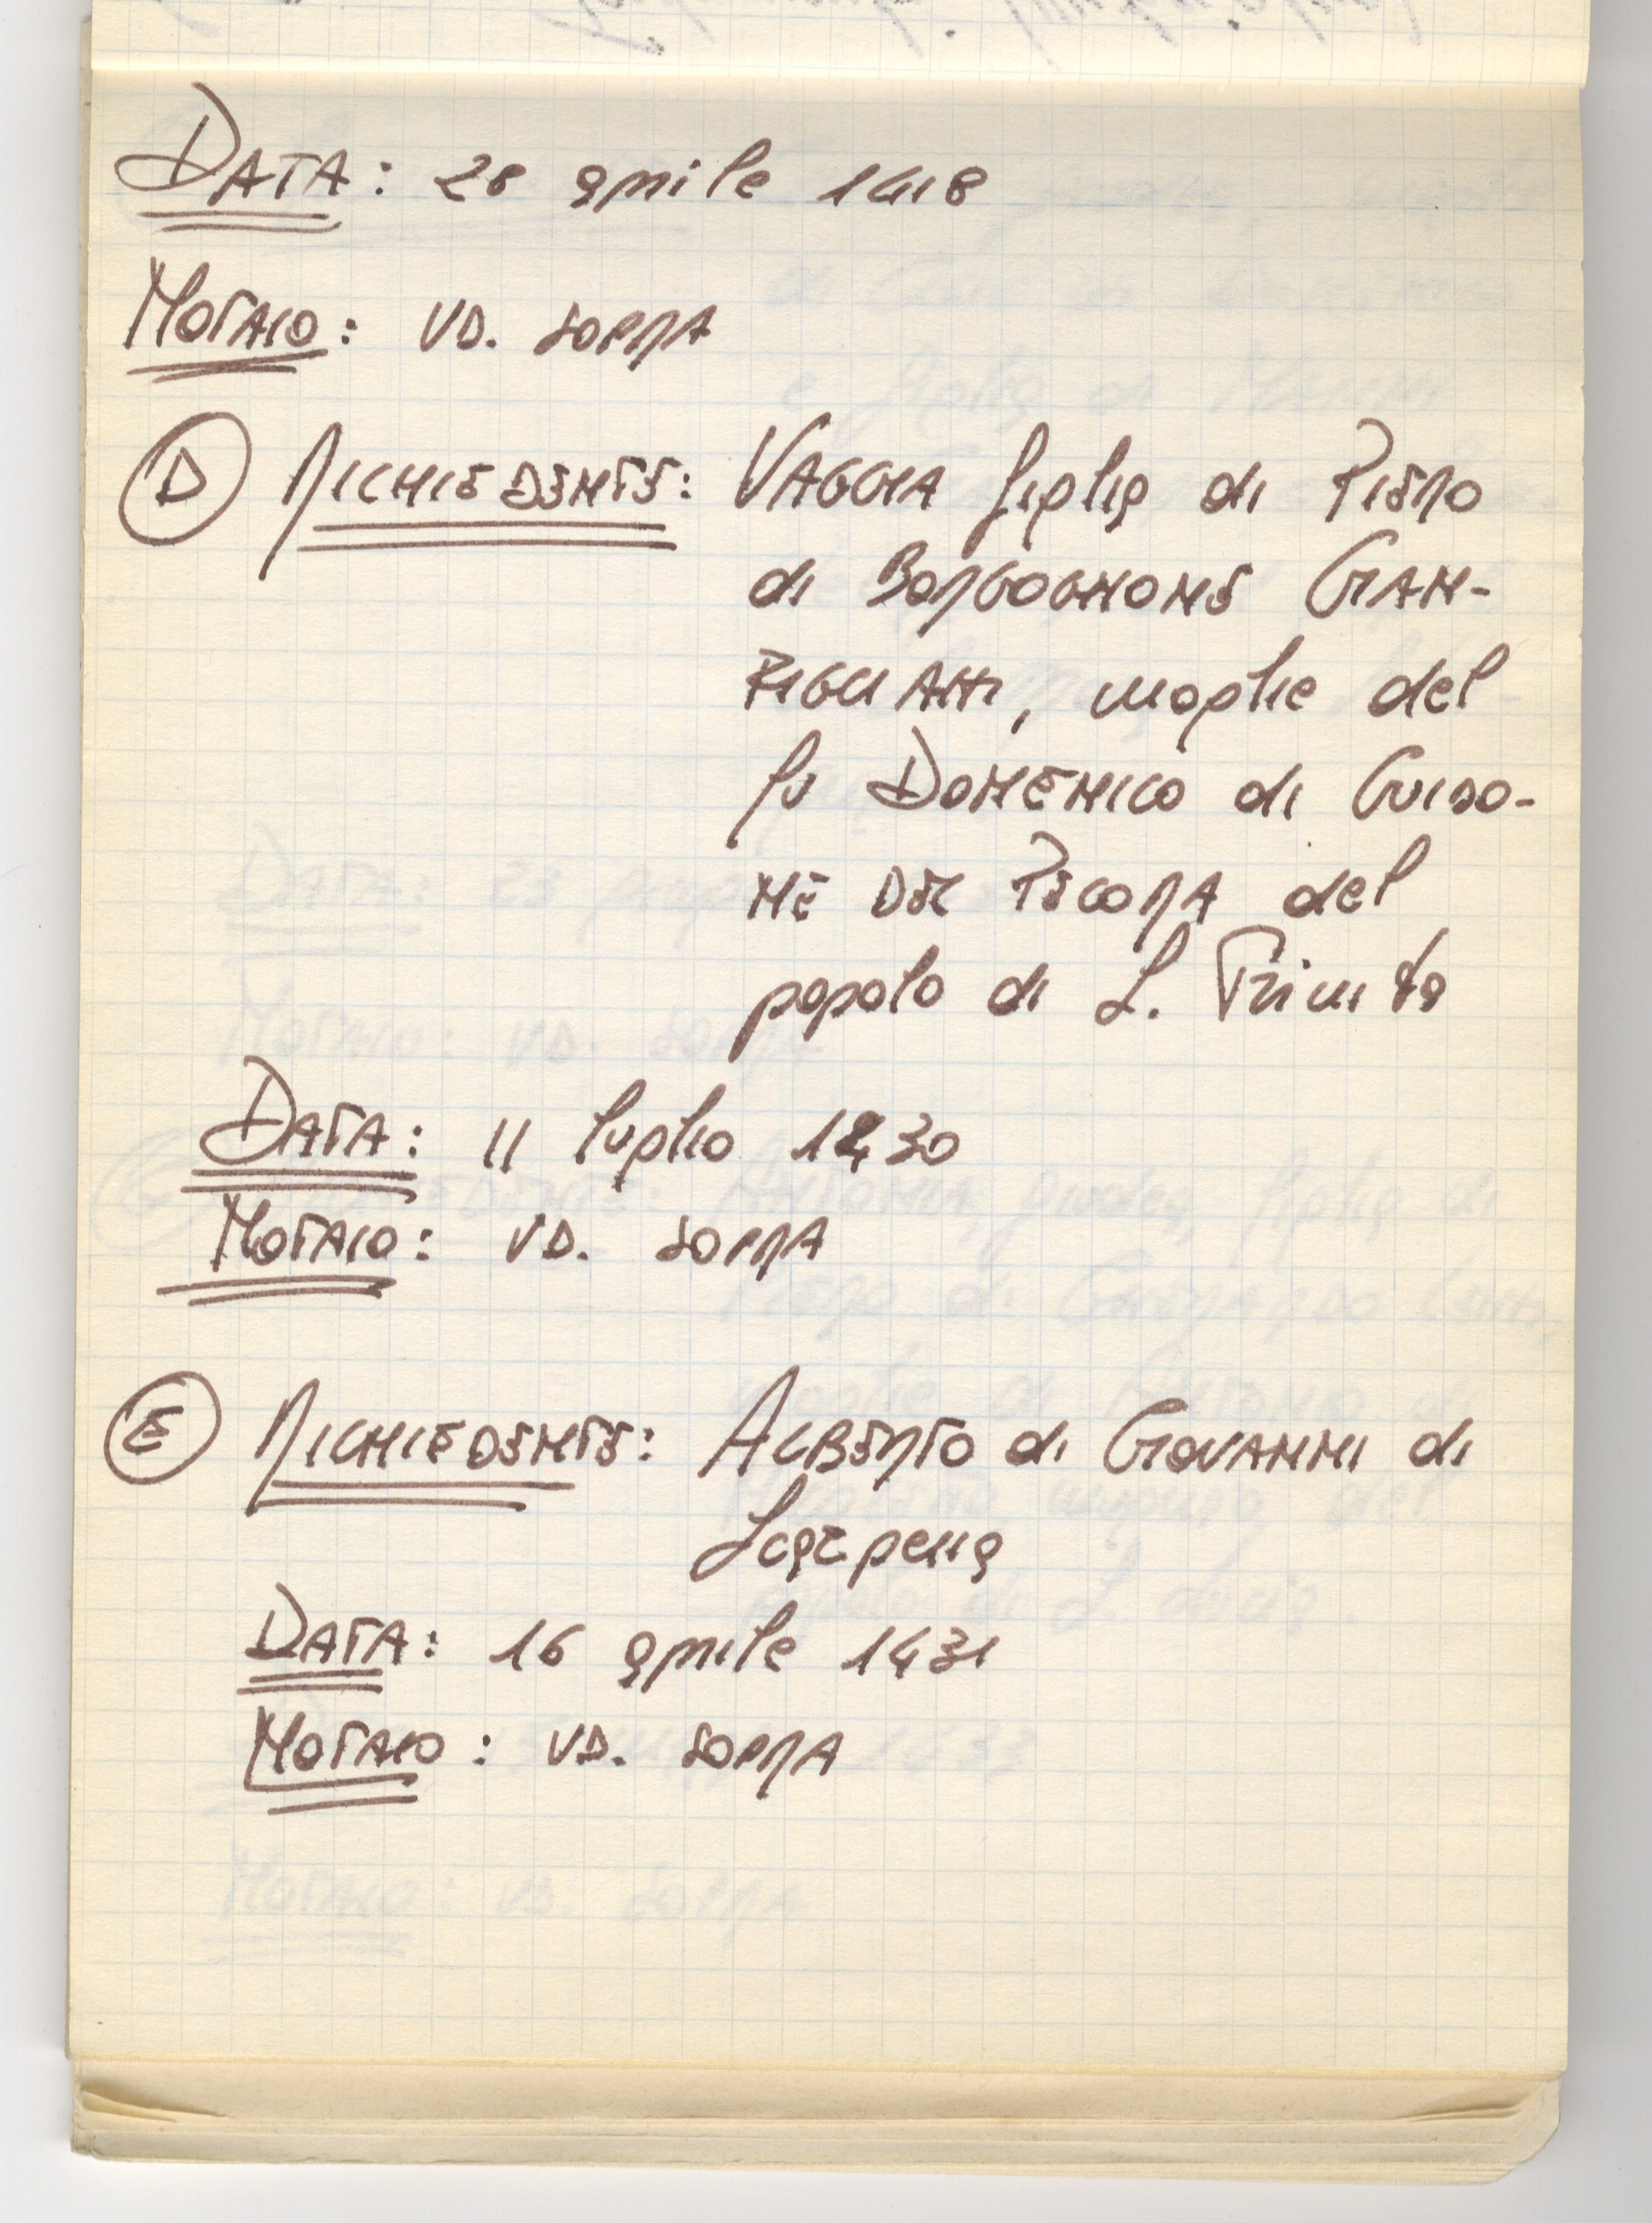 DATA: 28 aprile 1418
NOTAIO: VD. SOPRA
D RICHIEDENTE: VAGGIA figlia di PIERO
di BORGOGNONE GIAN-
FIGLIAZZI, moglie del
fu DOMENICO di GUIDO-
NE DEL PECORA del
popolo di S. Trinita
DATA: 11 luglio 1430
NOTAIO: VD. SOPRA
E RICHIEDENTE: ALBERTO di GIOVANNI di
DATA: 16 aprile 1431
NOTAIO: VD. SOPRA